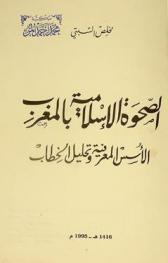 مخلص السبتي
الصحوة الإسلامية بالمغرب
الأسس المعرفية وتحليل الخطاب
1416 هـ - 1995 م